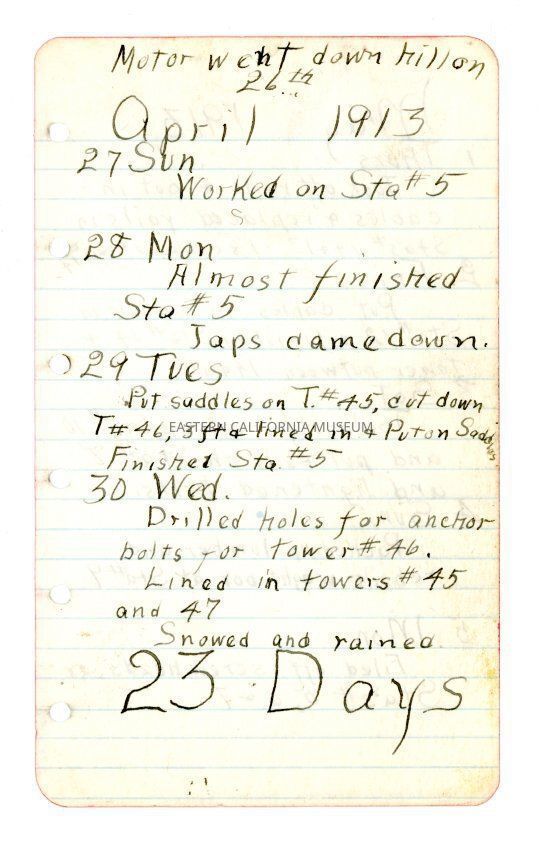 Motor went down hill on
26th
April 1913
27 Sun
Worked on Sta #5
28 Mon
Almost finished
Sta #5
Japs came down.
29 Tues
Put saddles on T. #45, cut down
T# 46, 3 ft & lined in & Put on Saddles
EASTERN CALIFORNIA MUSEUM
Finished Sta. #5
30 Wed.
Drilled holes for anchor
bolts for tower #46.
Lined in towers #45
and 47
Snowed and rained.
23 Days